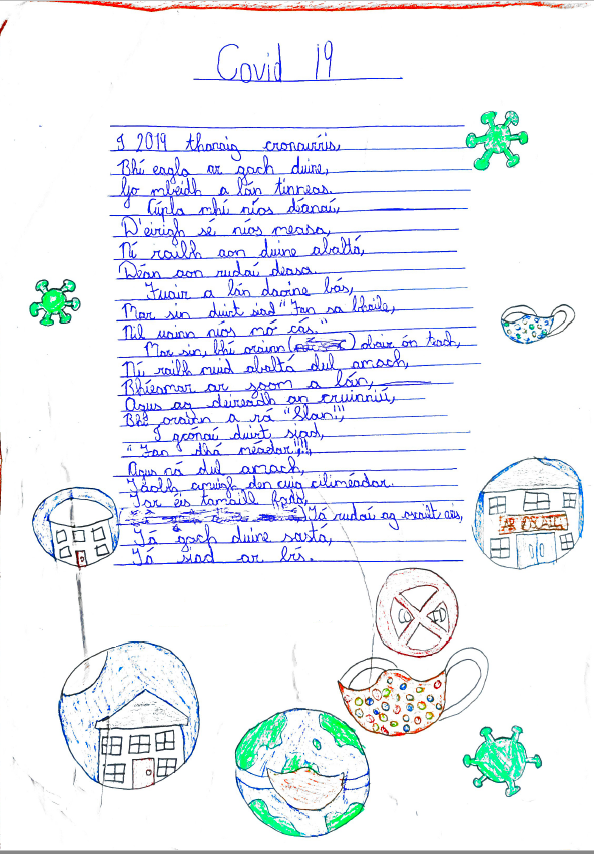 Covid 19
I 2019 thanaig cronavirís,
Bhí eagla ar gach duine,
Go mbeidh a lán tinneas.
Cúpla mhí níos déanaí,
D'éirigh sé níos measa,
Ní raibh aon duine abaltá,
Déan aon rudaí deasa.
Fuair a lán daoine bás,
Mar sin dúirt siad "Fan sa bhaile,
Níl uainn níos mó cás."
Mar sin, bhí orainn obair ón teach,
Ní raibh muid abaltá dul amach,
Bhíeamar ar zoom a lán,
Agus ag deireadh an cruinniú,
Bhí orainn a rá "Slan!",
I gcónaí dúirt siad,
"Fan dhá méadar!",
Agus ná dul amach,
amuigh den cúig ciliméadar.
Tar éis tamaill fada,
Tá rudaí ag oscailt arís,
Tá gach duine sasta,
Tá siad ar bís.
AR OSCAILT